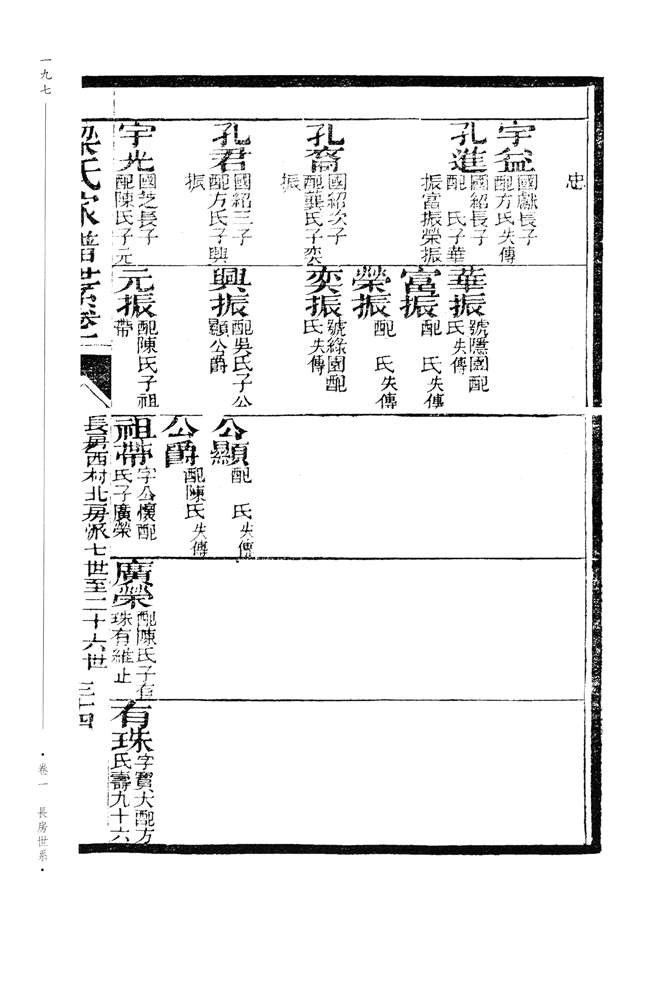 忠
宇益 國獻長子
配方氏失傳
孔進 國紹長子
配　氏子華
振富振榮振
孔裔 國紹次子
配龔氏子奕
振
孔君 國紹三子
配方氏子興
振
宇光 國芝長子
配陳氏子元
華振 號隱園配
氏失傳
富振 配　氏失傳
榮振 配　氏失傳
奕振 號綠園配
氏失傳
興振 配吳氏子公
顯公爵
元振 配陳氏子祖
帶
公顯 配　氏失傳
公爵 配陳氏失傳
祖帶 字公懷配
氏子廣榮
廣榮 配陳氏子有
珠有維止
有珠 字寶大配方
氏壽九十六
梁氏家譜世系卷一
長房西村北房派七世至二十六世
三十四
一九七
·卷一　長房世系·